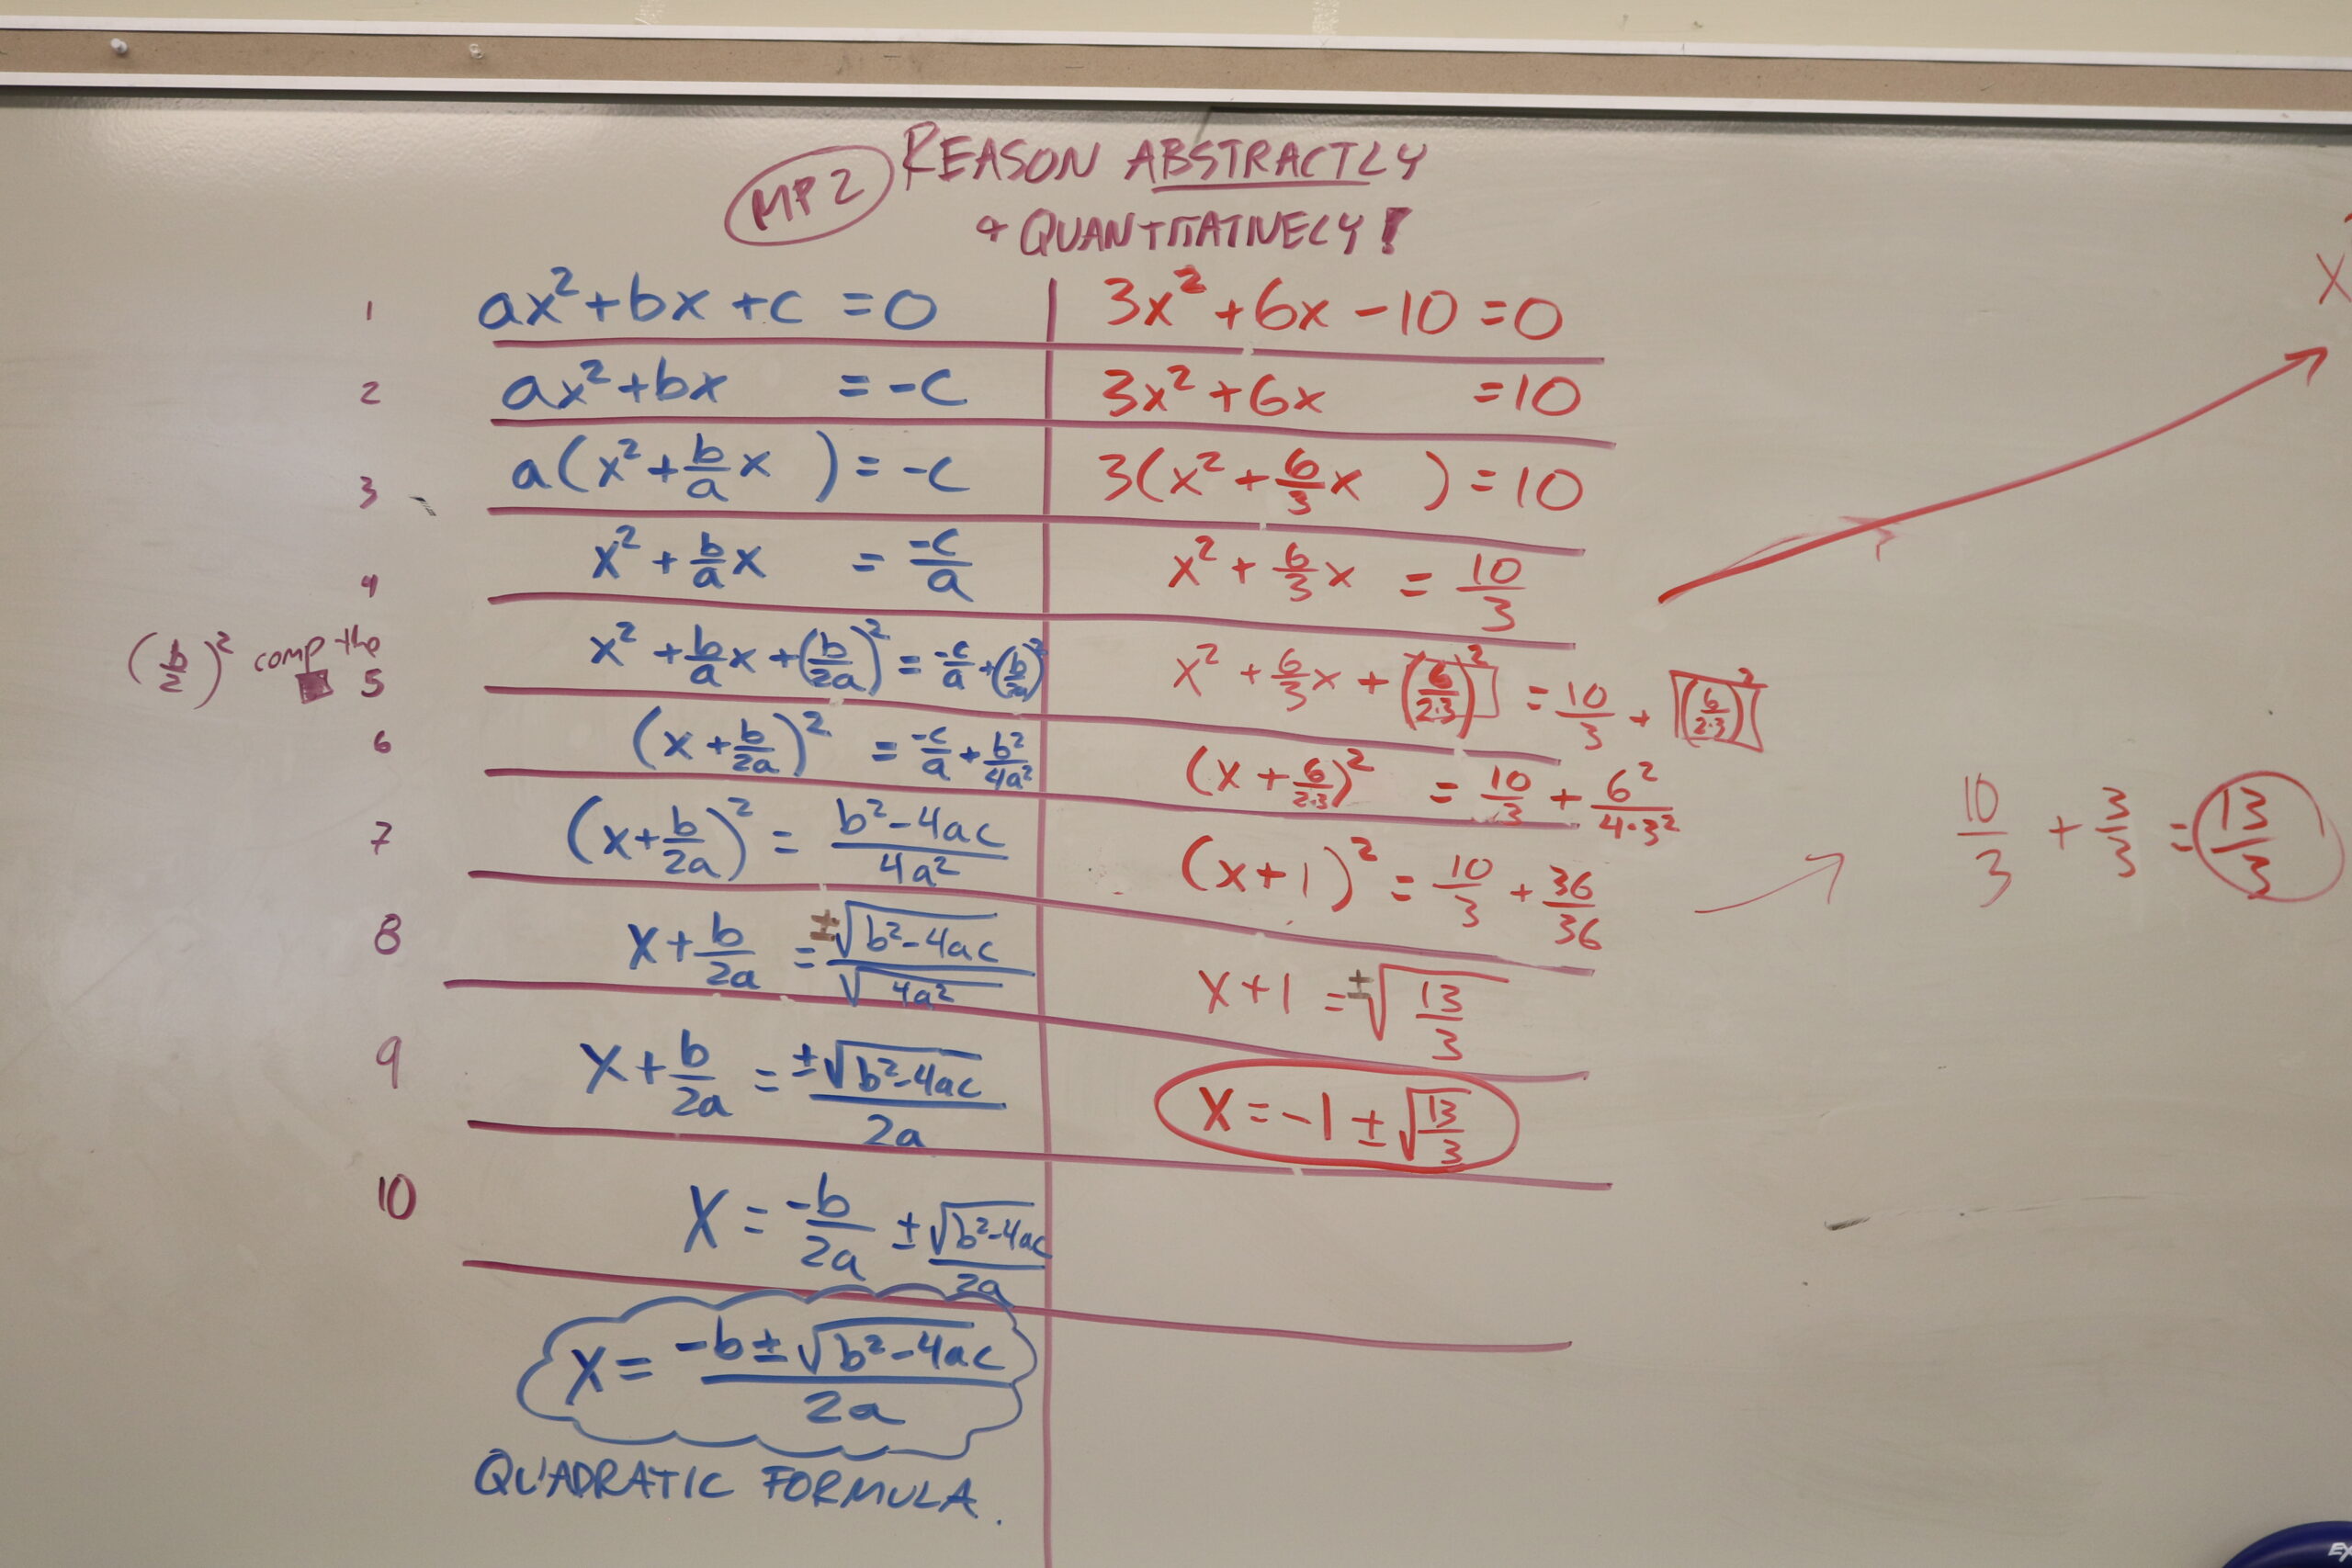 MP2 REASON ABSTRACTLY
& QUANTITATIVELY!
1 ax² + bx + c = 0 3x² + 6x - 10 = 0
2 ax² + bx = -c 3x² + 6x = 10
3 a(x² + b/a x ) = -c 3(x² + 6/3 x ) = 10
4 x² + b/a x = -c/a x² + 6/3 x = 10/3
(b/2)² comp the ■ 5 x² + b/a x + (b/2a)² = -c/a + (b/2a)² x² + 6/3 x + (6/2·3)² = 10/3 + (6/2·3)²
6 (x + b/2a)² = -c/a + b²/4a² (x + 6/2·3)² = 10/3 + 6²/4·3²
7 (x + b/2a)² = b²-4ac/4a² (x + 1)² = 10/3 + 36/36 → 10/3 + 3/3 = 13/3
8 x + b/2a = ±√b²-4ac/√4a² x + 1 = ±√13/3
9 x + b/2a = ±√b²-4ac/2a x = -1 ± √13/3
10 x = -b/2a ± √b²-4ac/2a
x = -b ± √b²-4ac/2a
QUADRATIC FORMULA.